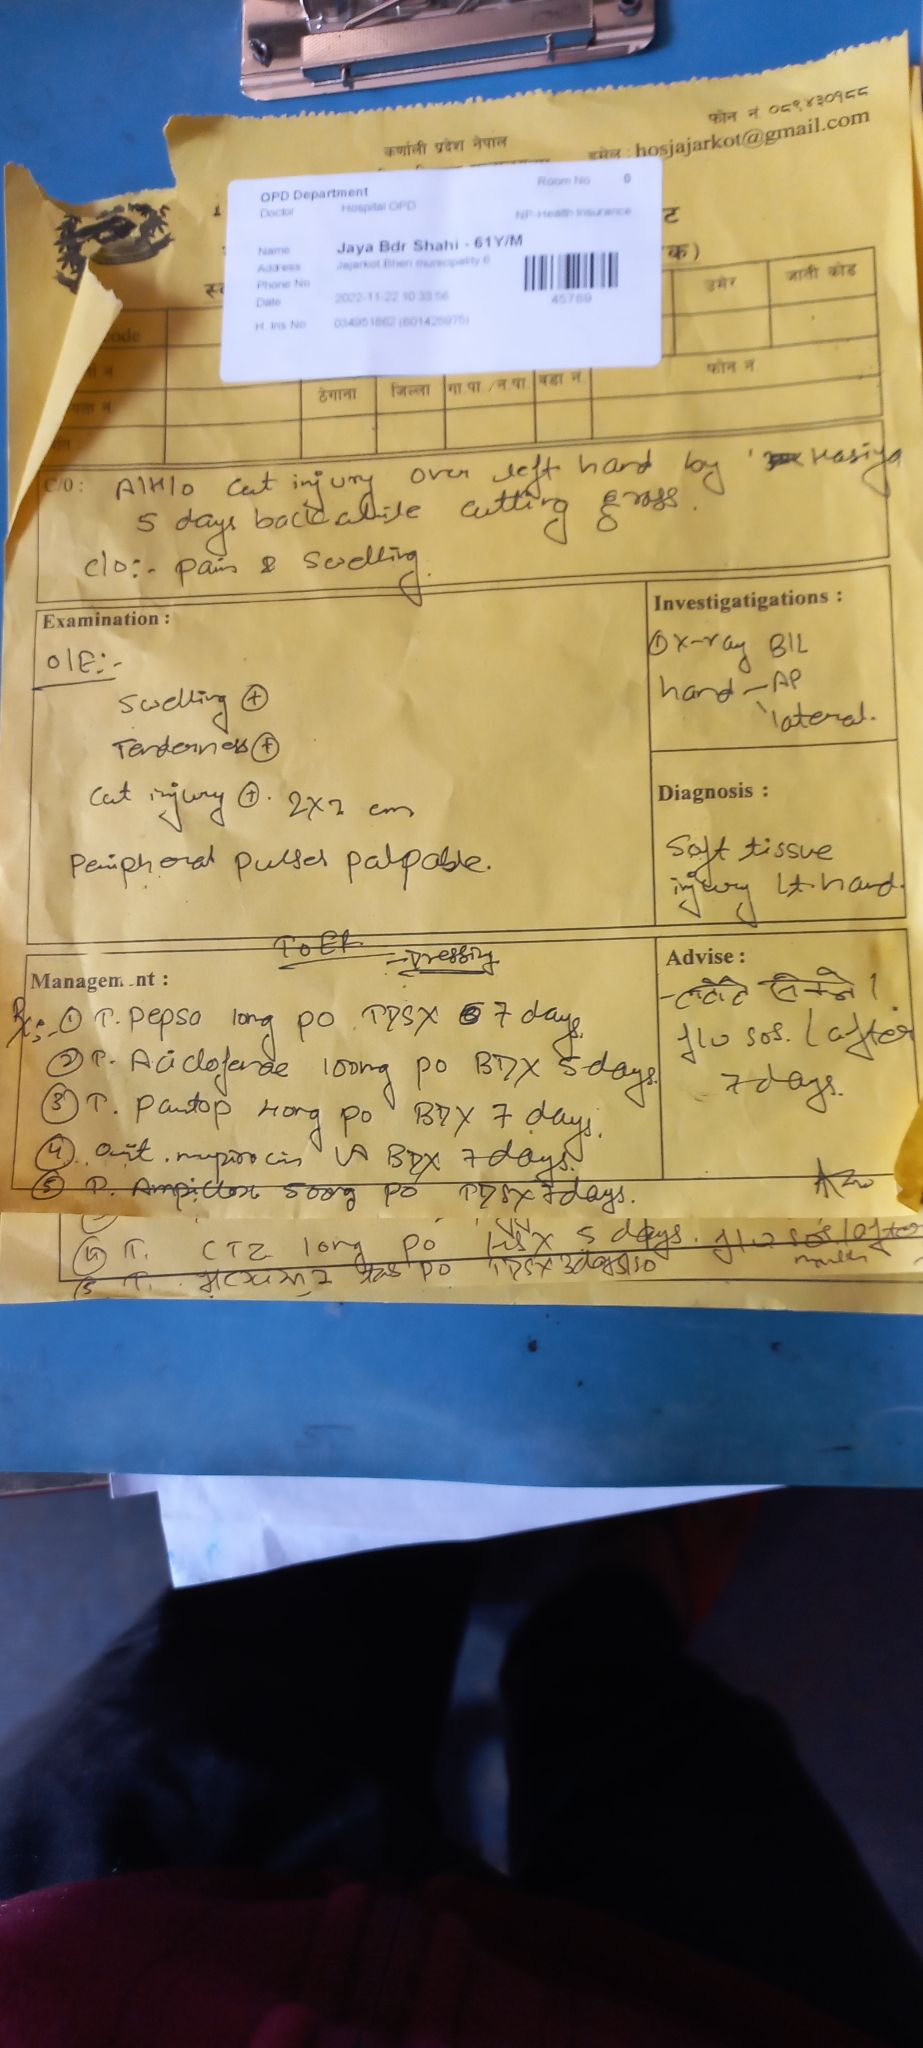 कर्णाली प्रदेश नेपाल
फोन नं. ०८९४३०१८८
इमेल : hosjajarkot@gmail.com
OPD Department
Room No 6
Doctor Hospital OPD
NP-Health Insurance
Name Jaya Bdr Shahi - 61Y/M
Address Jajarkot,Bheri municipality 6
Phone No
Date 2022-11-22 10:33:56
45789
H. Ins No 034951862 (601425975)
उमेर जाती कोड
ठेगाना जिल्ला गा.पा./न.पा. वडा नं. फोन नं
C/O : A/H/O cut injury over left hand by Hasiya
5 days back while cutting grass.
C/O:- Pain & swelling.
Examination :
O/E:-
Swelling ⊕
Tenderness ⊕
Cut injury ⊕. 2x2 cm
Peripheral pulses palpable.
Investigatigations :
① X-ray B/L
hand - AP
lateral.
Diagnosis :
Soft tissue
injury Lt. hand.
- Dressing
Management :
Rx:- ① T. Pepsa long po TDS X 7 days.
② T. Aciclofenac 100mg po BD X 5 days.
③ T. Pantop 40mg po BD X 7 days.
④ Oint. mupirocin LA BD X 7 days.
⑤ T. Ampiclox 500mg po TDS X 7 days.
Advise :
f/u sos. / after
7 days.
T. CTZ 10mg po X 5 days. f/u sos/after
po TDS X 3 days